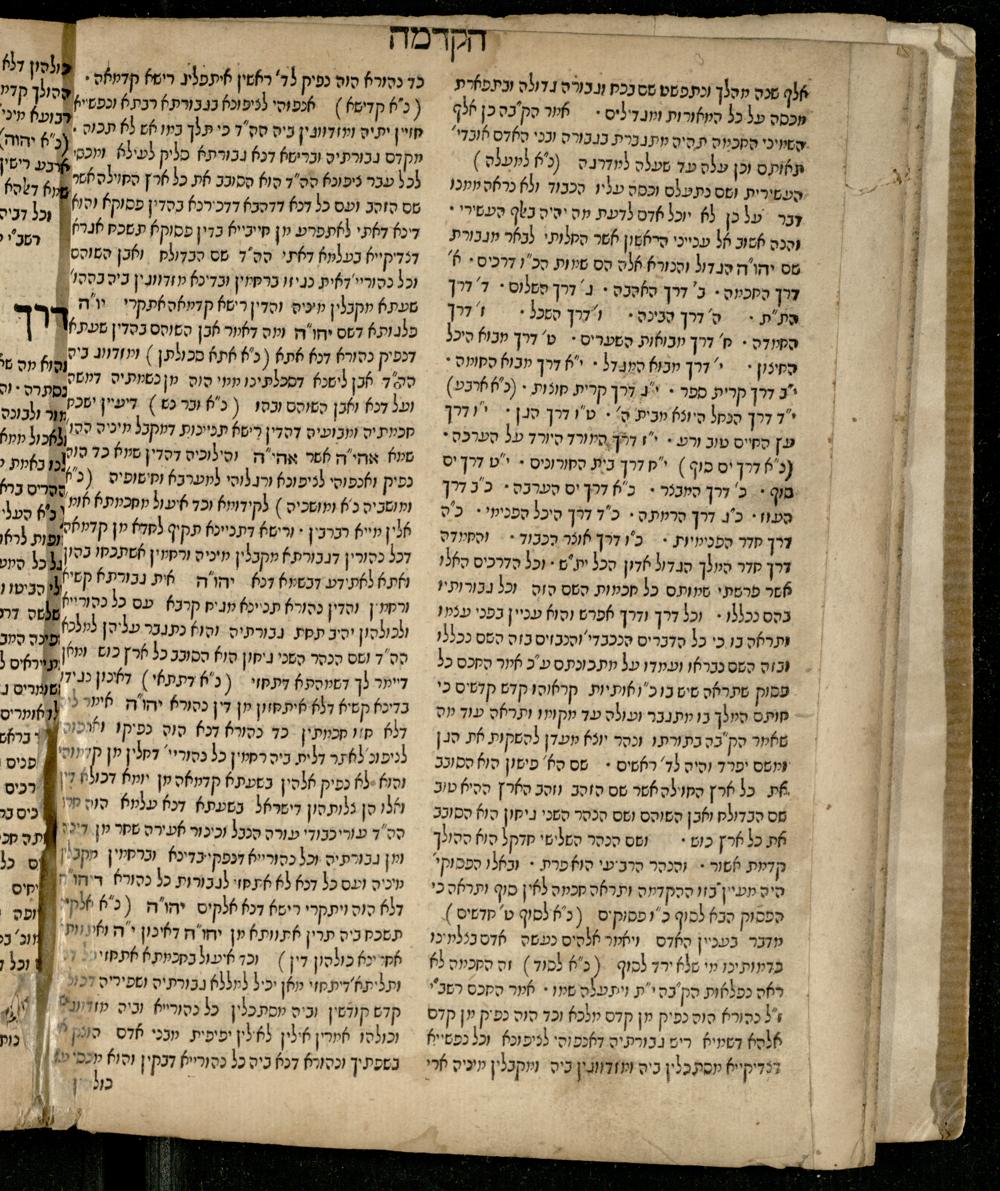 הקדמה
אלף שנה מהלך ונתפשט שם בכח וגבורה גדולה ובתפארת
מכסה על כל המאורות ומגדילים · אמר הק״בה כן אלף
השמיני החכמה תהיה מתגברת בגבורה ובני האדם אובדי׳
תאותם וכן עלה עד שעלה למדרגה (נ״א למעלה)
העשירית ושם נתעלם וכסה עליו הכבוד ולא נראה ממנו
דבר על כן לא יוכל אדם לדעת מה יהיה באף העשירי ·
והנה אשוב אל ענייני הראשון אשר החלותי לבאר מגבורת
שם יהו״ה הגדול והנורא אלה הם שמות הכ״ו דרכים · א׳
דרך החכמה · ב׳ דרך האהבה · ג׳ דרך השלום · ד׳ דרך
הת״ת · ה׳ דרך הבינה · ו׳ דרך השכל · ז׳ דרך
החמדה · ח׳ דרך מבואות השערים · ט׳ דרך מבוא היכל
החיצון · י׳ דרך מבוא המגדל · י״א דרך מבוא החומה ·
י״ב דרך קרית ספר · י״ג דרך קרית חוצות · (נ״א ארבע)
י״ד דרך הנחל היוצא מבית ה׳ · ט״ו דרך הגן · י״ו דרך
עץ החיים טוב ורע · י״ז דרך המורד היורד על הערבה ·
(נ״א דרך ים סוף) י״ח דרך בית החורונים · י״ט דרך ים
סוף · כ׳ דרך המבצר · כ״א דרך ים הערבה · כ״ב דרך
העוז · כ״ג דרך הרמתה · כ״ד דרך היכל הפנימי · כ״ה
דרך חדר הפנימיות · כ״ו דרך אוצר הכבוד · והחמדה
דרך חדר המלך הגדול אדון הכל ית״ש · וכל הדרכים האלו
אשר פרשתי שמותם כל חכמות השם הזה וכל גבורותיו
בהם נכללו · וכל דרך ודרך אפרש והוא עניין בפני עצמו
ותראה בו כי כל הדברים הנכבדי׳ והנבזים בזה השם נכללו
ובזה השם נבראו ועמדו על מתכונתם ע״כ אמר החכם כל
פסוק שתראה שיש בו כ״ו אותיות קראוהו קדש קדשים כי
חותם המלך בו מתגבר ועולה עד מקומו ותראה עוד מה
שאמר הק״בה בתורתו ונהר יוצא מעדן להשקות את הגן
ומשם יפרד והיה לד׳ ראשים · שם הא׳ פישון הוא הסובב
את כל ארץ החוילה אשר שם הזהב וזהב הארץ ההיא טוב
שם הבדולח ואבן השוהם ושם הנהר השני גיחון הוא הסובב
את כל ארץ כוש · ושם הנהר השלישי חדקל הוא ההולך
קדמת אשור · והנהר הרביעי הוא פרת · ובאלו הפסוקי׳
היה מעיין בזו ההקדמה ותראה חכמה לאין סוף ותראה כי
הפסוק הבא לסוף כ״ו פסוקים (נ״א לסוף ט׳ חדשים)
מדבר בעניין האדם ויאמר אלהים נעשה אדם בצלמינו
כדמותינו מי שלא ירד לסוף (נ״א לסוד) זה החכמה לא
ראה נפלאות הק״בה י״ת ויתעלה שמו · אמר החכם רשב״י
ז״ל נהורא הוה נפיק מן קדם מלכא וכד הוה נפיק מן קדם
אלהא דשמיא ריש גבורתיה דאנפוהי לציפונא וכל נפשייא
דצדיקייא מסתכלין ביה ומזדווגין ביה ומקבלין מיניה ארי
כד נהורא הוה נפיק לד׳ ראשין איתפליג רישא קדמאה ·
(נ״א קדישא) אנפוהי לציפונא בגבורתא רבתא ונפשייא
חויין יתיה ומזדווגין ביה הה״ד כי תלך במו אש לא תכוה ·
מקדם גבורתיה וברישא דנא גבורתא סליק לעילא ומכסי
לכל עבר ציפונא הה״ד הוא הסובב את כל ארץ החוילה אשר
שם הזהב ועם כל דנא דדהבא דדכירנא בהדין פסוקא והוא
דינא דאתי לאתפרע מן חייביא בדין פסוקא תשכח אגרא
דצדיקייא בעלמא דאתי הה״ד שם הבדולח ואבן השוהם
וכל נהוריי׳ דאית גניזו ברחמין ובדינא מזדווגין ביה בההו׳
שעתא מקבלין מיניה והדין רישא קדמאה אתקרי יו״ה
פלגותא דשם יהו״ה ומה דאמר אבן השוהם בהדין שעתא
דנפיק נהורא דנא אתא (נ״א אתא סכולתן) ומזדווג ביה
הה״ד אבן לישנא דסכלתינו ממי הוה מן נשמתיה דמשה
ועל דנא ואבן השוהם ובהו (נ״א ובר נש) דיעיין ישכח
חכמתיה ומבועיה דהדין רישא תניינות דמקבל מיניה ההו
שמא אהי״ה אשר אהי״ה והילוכיה דהדין שמא כד הוה
נפיק ואנפוהי לציפונא ורגלוהי למערבא וחישופיה (נ״א
ומושביה נ״א ומושכיה) לקידומא וכד איעול מחכמתא אומ׳
אלין מייא רברבין · ורישא דתניינא תקיף לחדא מן קדמאה
דכל נהורין דגבורתא מקבלין מיניה ורחמין אשתכחו בהון
ואתא לאתידע דבשמא דנא יהו״ה אית גבורתא קשיא
ורחמין והדין נהורא תניינא מגיח קרבא עם כל נהורייא
ולכולהון יהיב תחת גבורתיה והוא נתגבר עליהן למלכא
הה״ד ושם הנהר השני גיחון הוא הסובב כל ארץ כוש ומאן
דיימר לך דשמהתא דתחוי (נ״א דתתאי) דאינון גנידו
בדינא קשיא דלא איתחזון מן דין נהורא יהו״ה אימר ליה
דלא חזו חכמתין כד נהורא דנא הוה נפיקו ואנפוהי
לציפונ׳ לאתר דלית ביה רחמין כל נהוריי׳ דחלין מן קדמוהי
והוא לא נפיק אלהין בשעתא קדמאה מן יומא דכולא דין
ואלו הן גלותהון דישראל בשעתא דנא עלמא הוה חרו
הה״ד עורי כבודי עורה הנבל וכינור אעירה שחר מן דינה
ומן גבורתיה וכל נהורייא דנפקי בדינא וברחמין מקבלין
מיניה ועם כל דנא לא אתחזי לגבורות כל נהורא דיהו״ה
דלא הוה ויתקרי רישא דנא אלקים יהו״ה (נ״א אלקי
תשכח ביה תרין אתוותא מן יהו״ה דאינון י״ה ואתוות
אחרינא כולהון דין) וכד איעול בחכמתא אתחזי על ד
ותליתא׳ דיתחזי מאן יכיל למללא גבורתיה ושפיריה דכול
קדש קודשין וביה מסתכלין כל נהורייא וביה מזדווגין
וכולהו אמרין אילין לאילין יפיפית מבני אדם הוצק
בשפתיך ונהורא דנא ביה כל נהורייא דבקין והוא מכסי
כולהון
כולהון דלא
ההולך קדמ
רבועא מיני
(נ״א יהוה)
ארבע רישין
וכל דביה
רשב״י
דרך